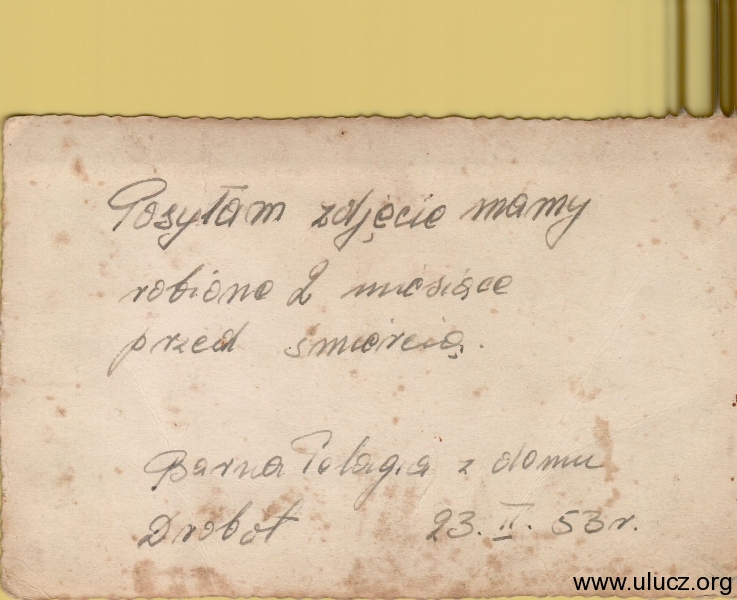 Posyłam zdjęcie mamy
robione 2 miesiące
przed śmiercią.
Barna Pelagia z domu
Drobot 23. II. 53 r.
www.ulucz.org